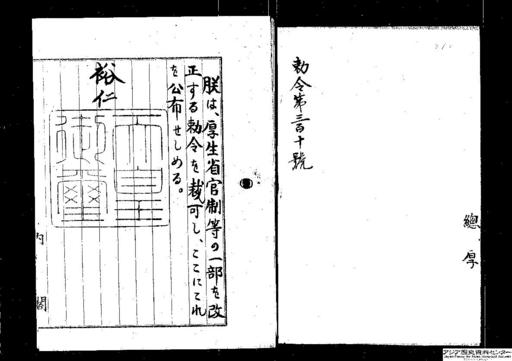 勅令第三百十號
總、厚
朕は、厚生省官制等の一部を改
正する勅令を裁可し、ここにこれ
を公布せしめる。
裕仁
天皇御璽
内閣
アジア歴史資料センター